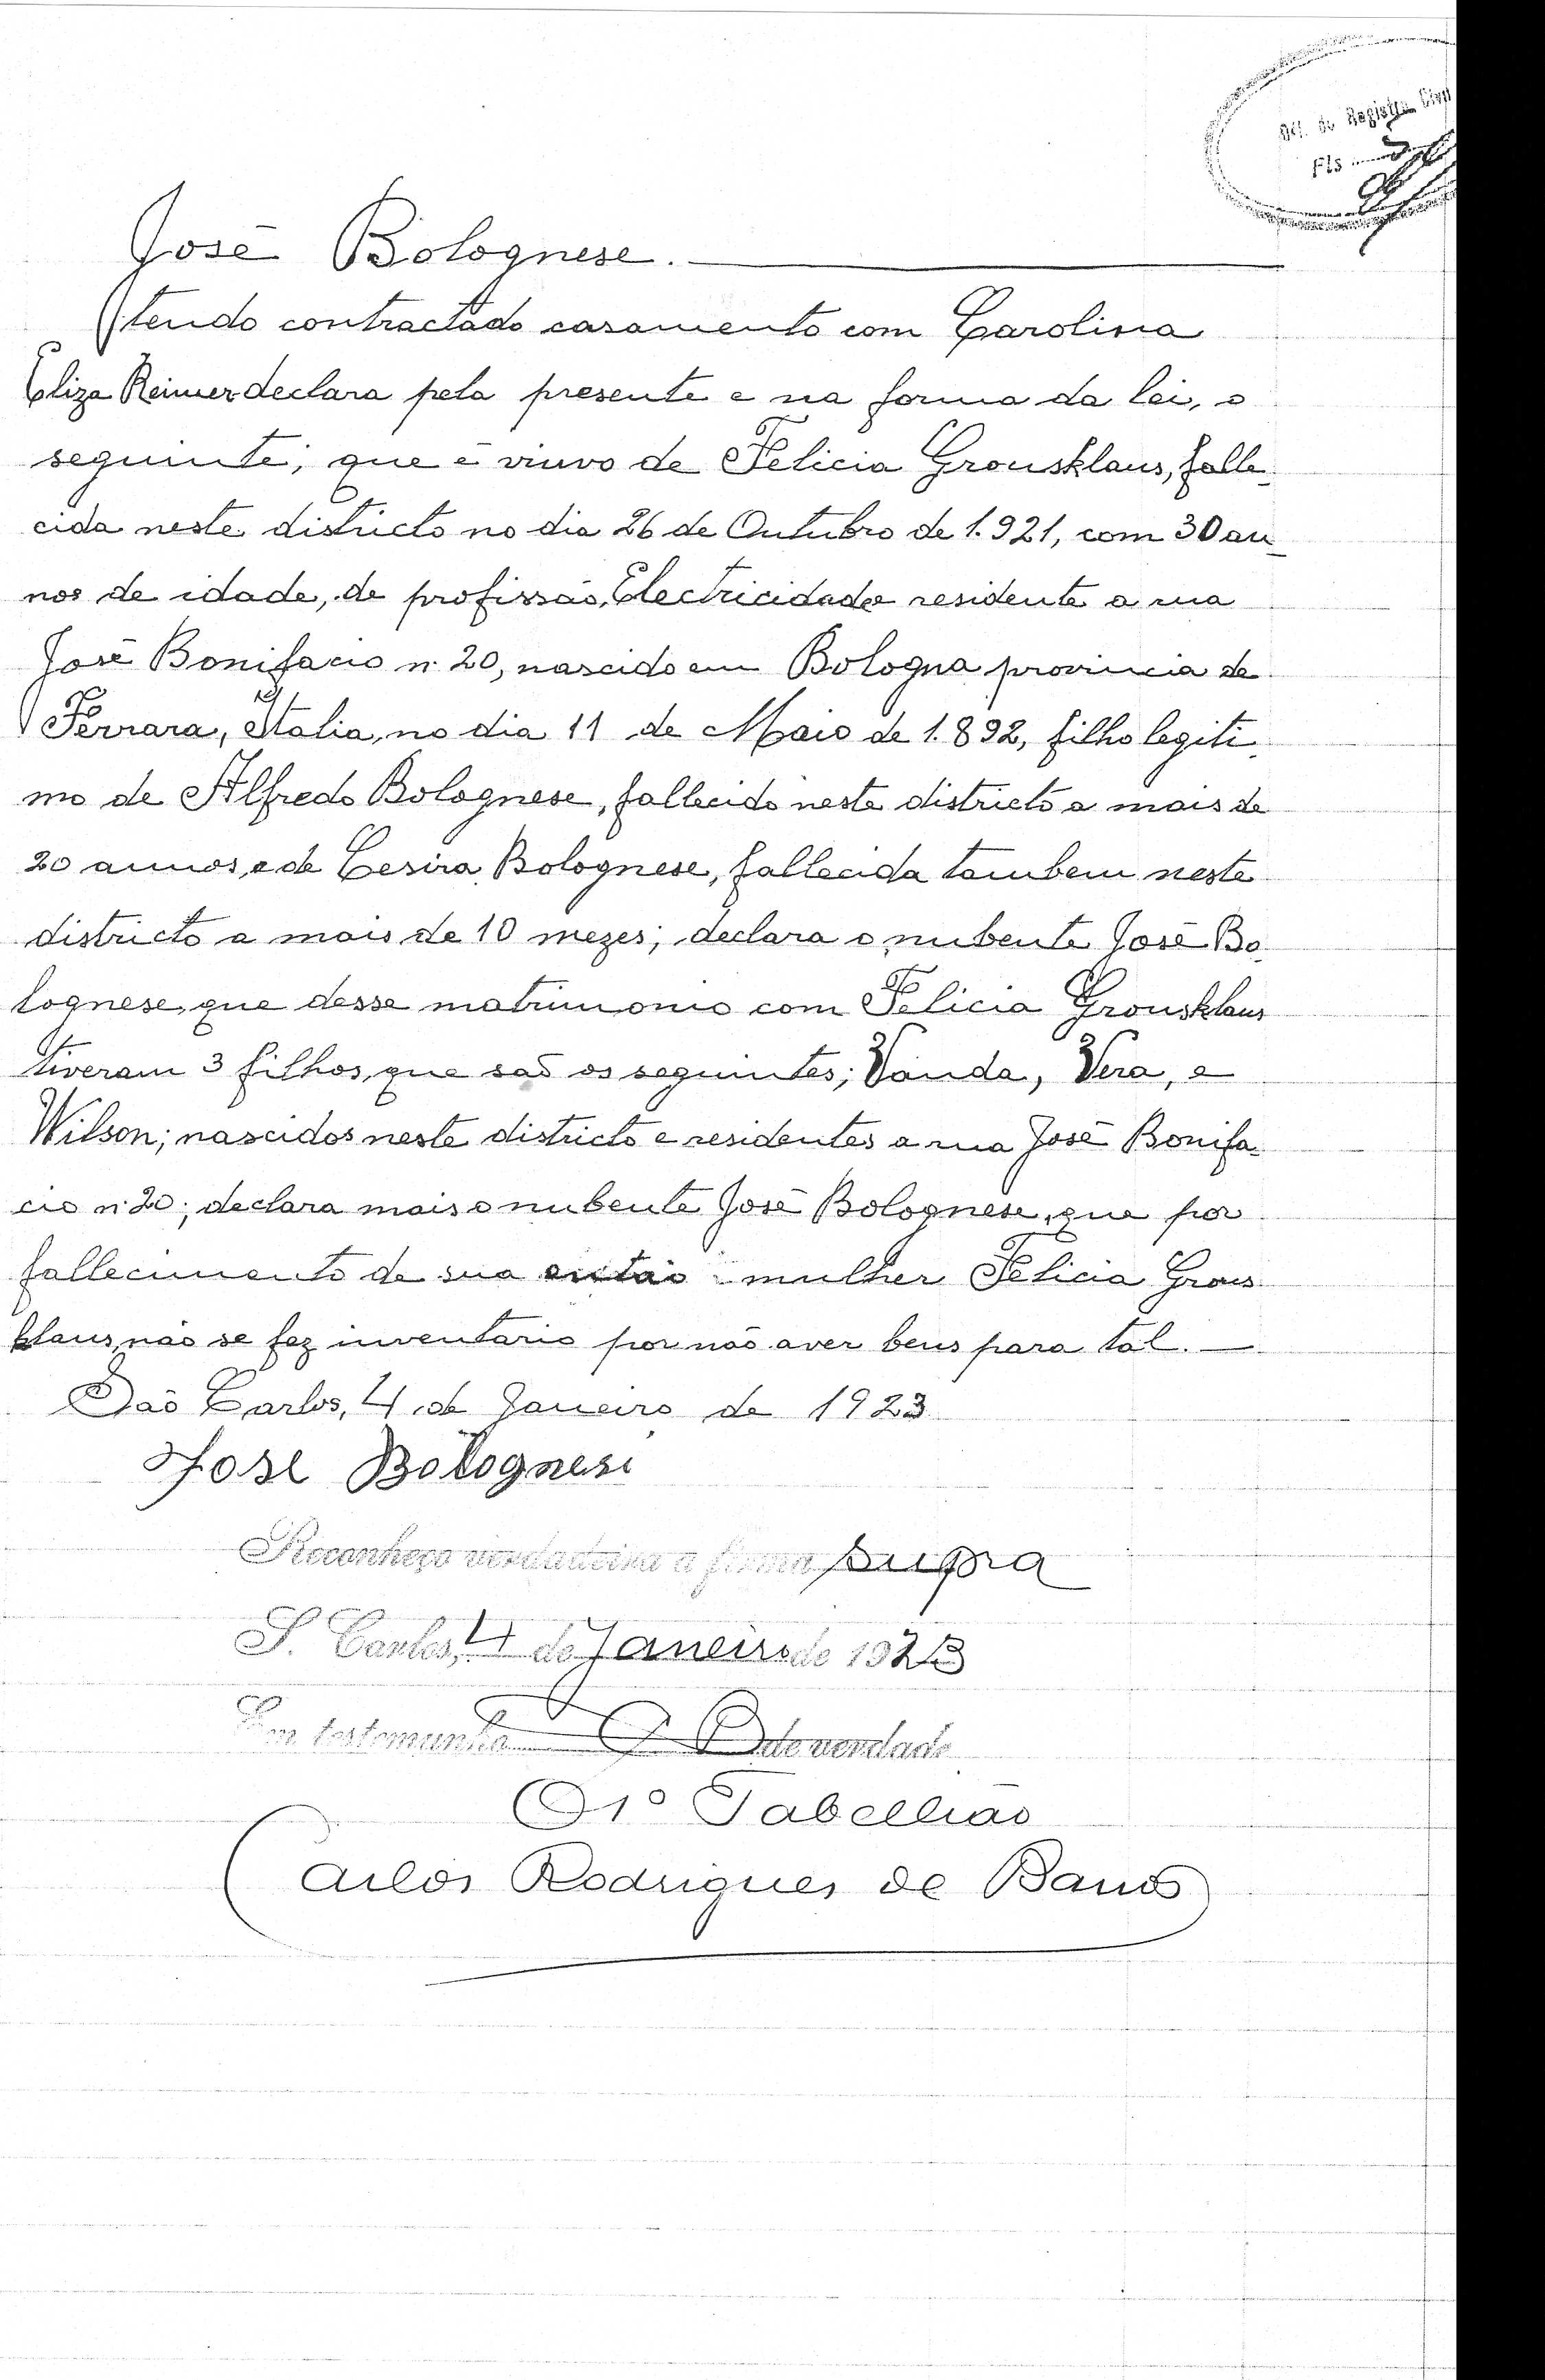 Of. do Registro Civil
Fls
José Bolognese.
tendo contractado casamento com Carolina
Eliza Reimer declara pela presente e na forma da lei, o
seguinte; que é viuvo de Felicia Grousklaus, falle_
cida neste districto no dia 26 de Outubro de 1.921, com 30 an_
nos de idade, de profissão, Electricidade residente a rua
José Bonifacio nº 20, nascido em Bologna provincia de
Ferrara, Italia, no dia 11 de Maio de 1.892, filho legiti_
mo de Alfredo Bolognese, fallecido neste districto a mais de
20 annos, e de Cesira Bolognese, fallecida tambem neste
districto a mais de 10 mezes; declara o nubente José Bo_
lognese, que desse matrimonio com Felicia Grousklaus
tiveram 3 filhos, que saõ os seguintes; Vanda, Vera, e
Wilson; nascidos neste districto e residentes a rua José Bonifa_
cio nº 20; declara mais o nubente José Bolognese, que por
fallecimento de sua então mulher Felicia Grous
klaus, não se fez inventario por não aver bens para tal. —
São Carlos, 4 de Janeiro de 1923
José Bolognesi
Reconheço verdadeira a firma supra
S. Carlos, 4 de Janeiro de 1923
Em testemunho da verdade
O 1º Tabellião
Carlos Rodrigues de Barros